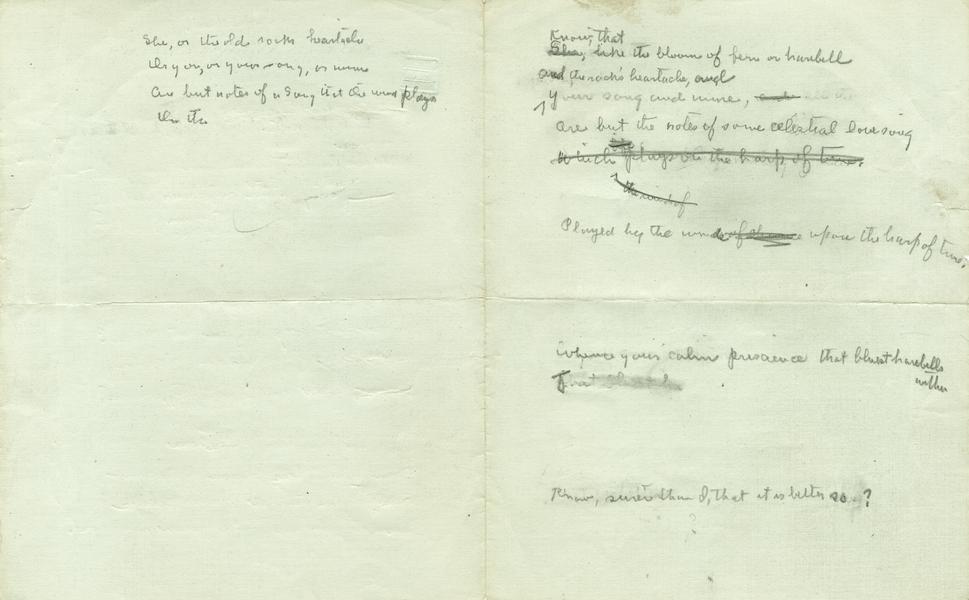 She, or the old rock's heartache
Or you, or your song, or mine
are but notes of a song that the wind plays
On the
Know, that
She, like the bloom of fern or harebell
and the rock's heartache, and
your song and mine,
are but the notes of some celestial love song
which plays on the harp of time.
the wind of
Played by the wind of chance upon the harp of time.
Whence your calm prescience that bluest harebells
wither
Know, surer than I, that it is better so?